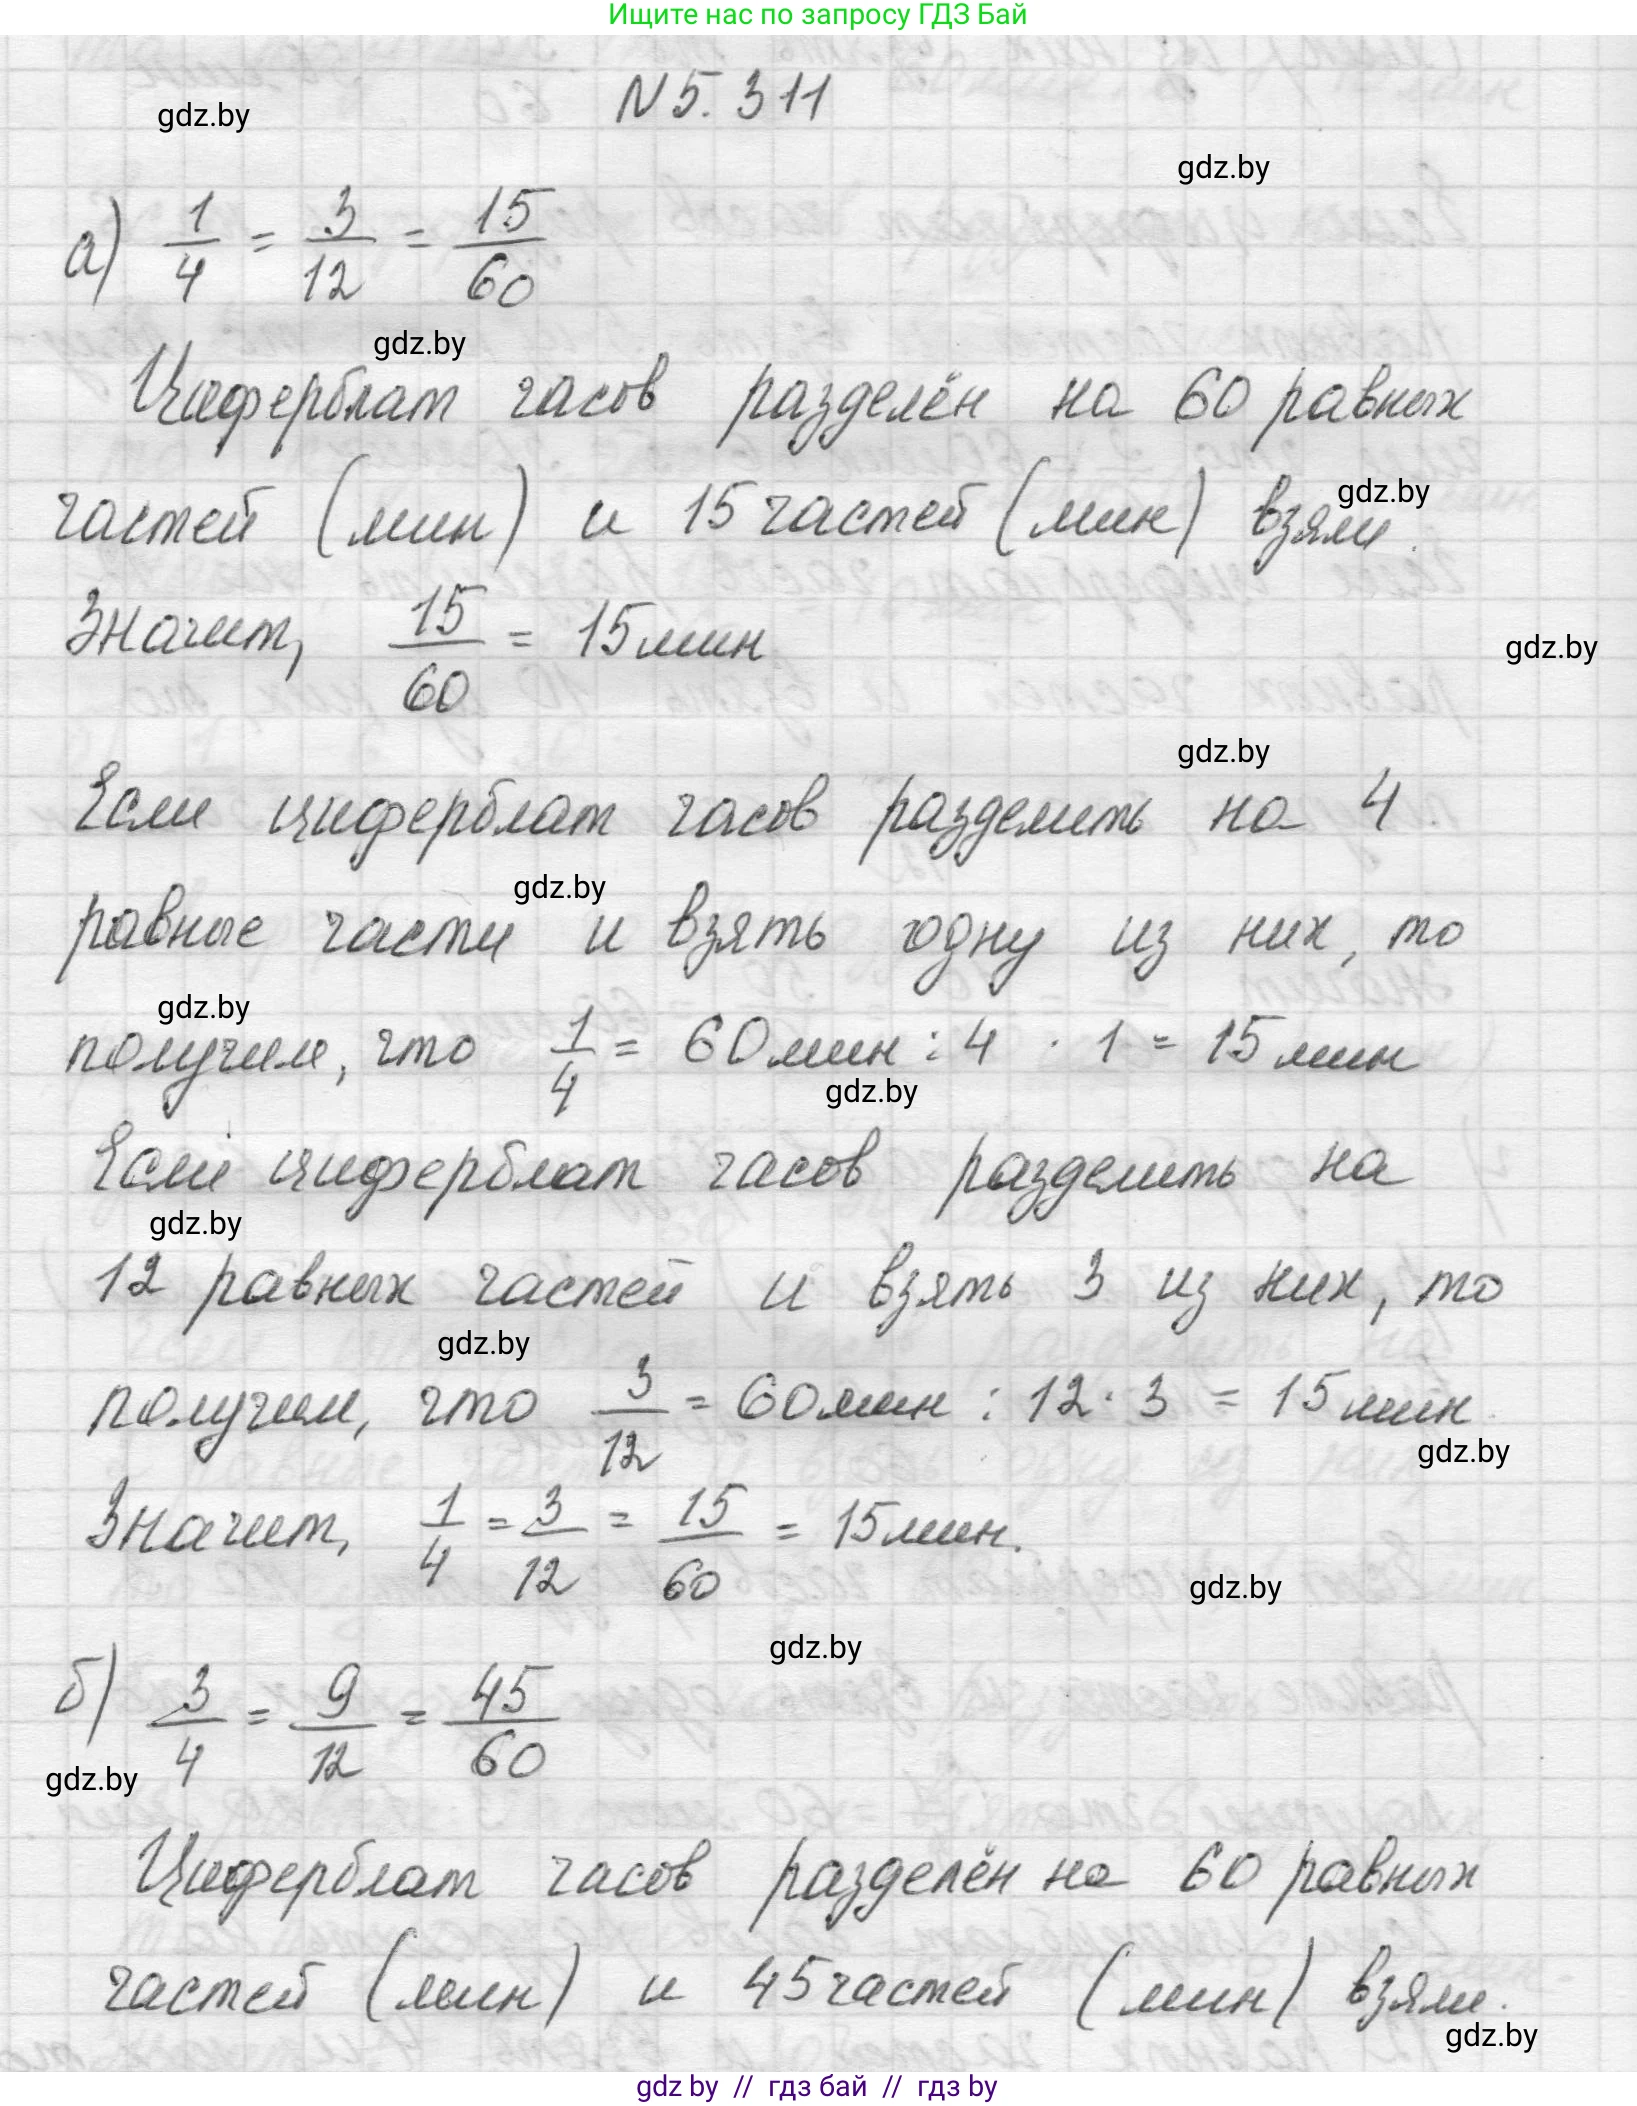 Ищите нас по запросу ГДЗ Бай
N 5. 311
gdz.by
gdz.by
а) 1/4 = 3/12 = 15/60
gdz.by
Циферблат часов разделён на 60 равных
gdz.by
частей (мин) и 15 частей (мин) взяли.
Значит, 15/60 = 15 мин
gdz.by
gdz.by
Если циферблат часов разделить на 4
gdz.by
равные части и взять одну из них, то
gdz.by
получим, что 1/4 = 60 мин : 4 · 1 = 15 мин
gdz.by
Если циферблат часов разделить на
gdz.by
12 равных частей и взять 3 из них, то
gdz.by
получим, что 3/12 = 60 мин : 12 · 3 = 15 мин
gdz.by
Значит, 1/4 = 3/12 = 15/60 = 15 мин.
gdz.by
gdz.by
б) 3/4 = 9/12 = 45/60
gdz.by
Циферблат часов разделён на 60 равных
частей (мин) и 45 частей (мин) взяли.
gdz.by
gdz by // гдз бай // гдз by